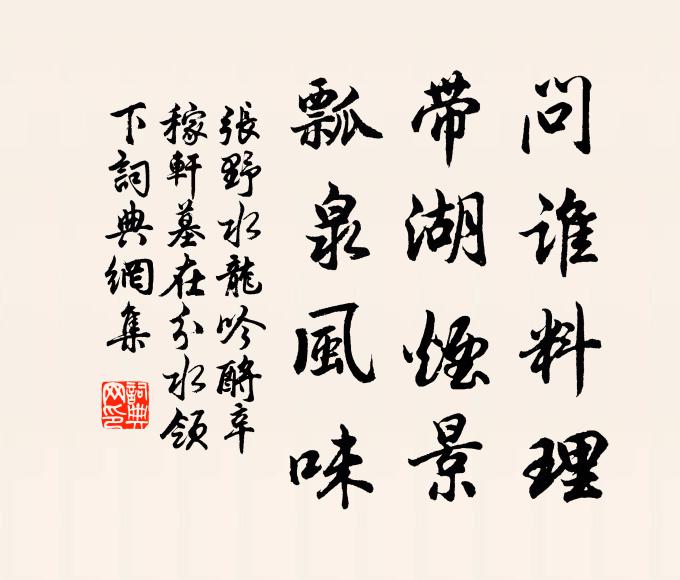 问谁料理
带湖煙景
瓢泉風味
張野水龍吟酹辛
稼軒墓在分水領
下詞典網集
詞典网印